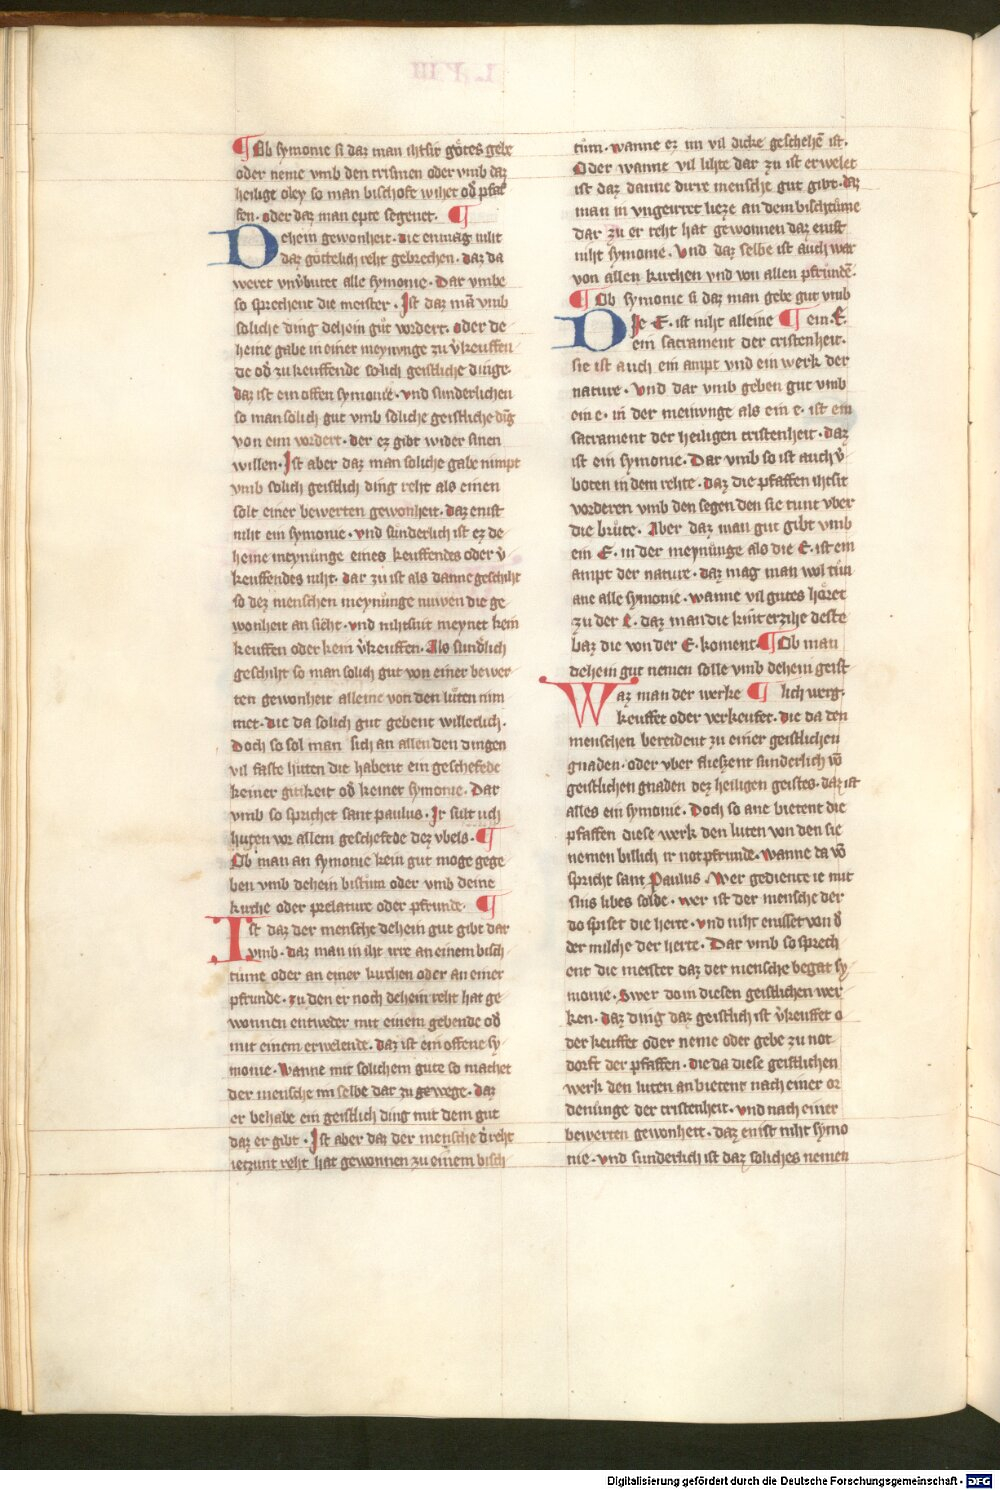 ¶ Ob symonie si daz man ihtsit gotes gebe
oder neme vmb den trismen oder vmb daz
heilige oley so man bischofe wihet od̕ pfaf
fen. oder daz man epte segenet. ¶
Dehein gewonheit. die enmag niht
daz götelich reht gebrechen. daz da
weret vn̄ v̕butet alle symonie. Dar vmbe
so sprechent die meister. Ist daz mā vmb
soliche ding dehein gůt vordert. oder de
heine gabe in einer meynunge zu v̕keuffen
de od̕ zu keuffende solich geistliche dinge.
daz ist ein offen symonie. vnd sunderlichen
so man solich gut vmb soliche geistliche dīg
von eim vordert. der ez gibt wider sinen
willen. Ist aber daz man soliche gabe nimpt
vmb solich geistlich ding reht als einen
solt einer bewerten gewonheit. daz enist
niht ein symonie. vnd sunderlich ist ez de
heine meynunge eines keuffendes oder v̕
keuffendes niht. dar zu ist als danne geschiht
so dez menschen meynunge nuwen die ge
wonheit an siht. vnd nihtsnit meynet kein
keuffen oder kein v̕keuffen. Als sund̕lich
geschiht so man solich gut von einer bewer
ten gewonheit alleine von den luten nim
met. die da solich gut gebent willeclich.
Doch so sol man sich an allen den dingen
vil faste huten die habent ein geschefede
keiner gitikeit od̕ keiner symonie. Dar
vmb so sprichet sant paulus. Ir sult uch
huten vor allem geschefede dez vbels. ¶
Ob man an symonie kein gut moge gege
ben vmb dehein bistum oder vmb deine
kirche oder prelature oder pfrunde. ¶
Ist daz der mensche dehein gut gibt dar
vmb. daz man in iht irre an einem bisch
tume oder an einer kirchen oder an einer
pfrunde. zu den er noch dehein reht hat ge
wonnen entweder mit einem gebende od̕
mit einem erwelende. daz ist ein offene sy
monie. Wanne mit solichem gute so machet
der mensche im selbe dar zu gewege. daz
er behabe ein geistlich ding mit dem gut
daz er gibt. Ist aber daz der mensche d̕ reht
ietzunt reht hat gewonnen zu einem bisch
tům. wanne ez im vil dicke geschehē ist.
Oder wanne vil lihte dar zu ist erwelet
ist daz danne dirre mensche gut gibt. daz
man in vngeirret lieze an dem bischtume
dar zu er reht hat gewonnen daz enist
niht symonie. Vnd daz selbe ist auch war
von allen kirchen vnd von allen pfrundē.
¶ Ob symonie si daz man gebe gut vmb
Die E. ist niht alleine ¶ ein. E.
ein sacrament der cristenheit.
sie ist auch ein ampt vnd ein werk der
nature. Vnd dar vmb geben gut vmb
ein e. in der meinunge als ein e. ist ein
sacrament der heiligen cristenheit. daz
ist ein symonie. Dar vmb so ist auch v̕
boten in dem rehte. daz die pfaffen ihtsit
vorderen vmb den segen den sie tunt vber
die brute. Aber daz man gut gibt vmb
ein E. in der meynunge als die E. ist ein
ampt der nature. daz mag man wol tun
ane alle symonie. wanne vil gutes höret
zu der E. daz man die kint erzihe deste
baz die von der E. koment. ¶ Ob man
dehein gut nemen solle vmb dehein geist
Waz man der werke ¶ lich werg.
keuffet oder verkeufet. die da den
menschen bereident zu einer geistlichen
gnaden. oder vber fliezent sunderlich vō
geistlichen gnaden dez heiligen geistes. daz ist
alles ein symonie. Doch so ane bietent die
pfaffen diese werk den luten von den sie
nemen billich ir notpfrunde. wanne da vō
spricht sant Paulus. Wer gediente ie mit
sins libes solde. wer ist der mensche der
do spiset die herte. vnd niht enisset von d̕
der milche der herte. Dar vmb so sprech
ent die meister daz der mensche begat sy
monie. Swer do in diesen geistlichen wer
ken. daz ding daz geistlich ist v̕keuffet o
der keuffet oder neme oder gebe zu not
dorft der pfaffen. die da diese geistlichen
werk den luten anbietent nach einer or
denunge der cristenheit. vnd nach einer
bewerten gewonheit. daz enist niht symo
nie. vnd sunderlich ist daz soliches nemen
Digitalisierung gefördert durch die Deutsche Forschungsgemeinschaft - DFG